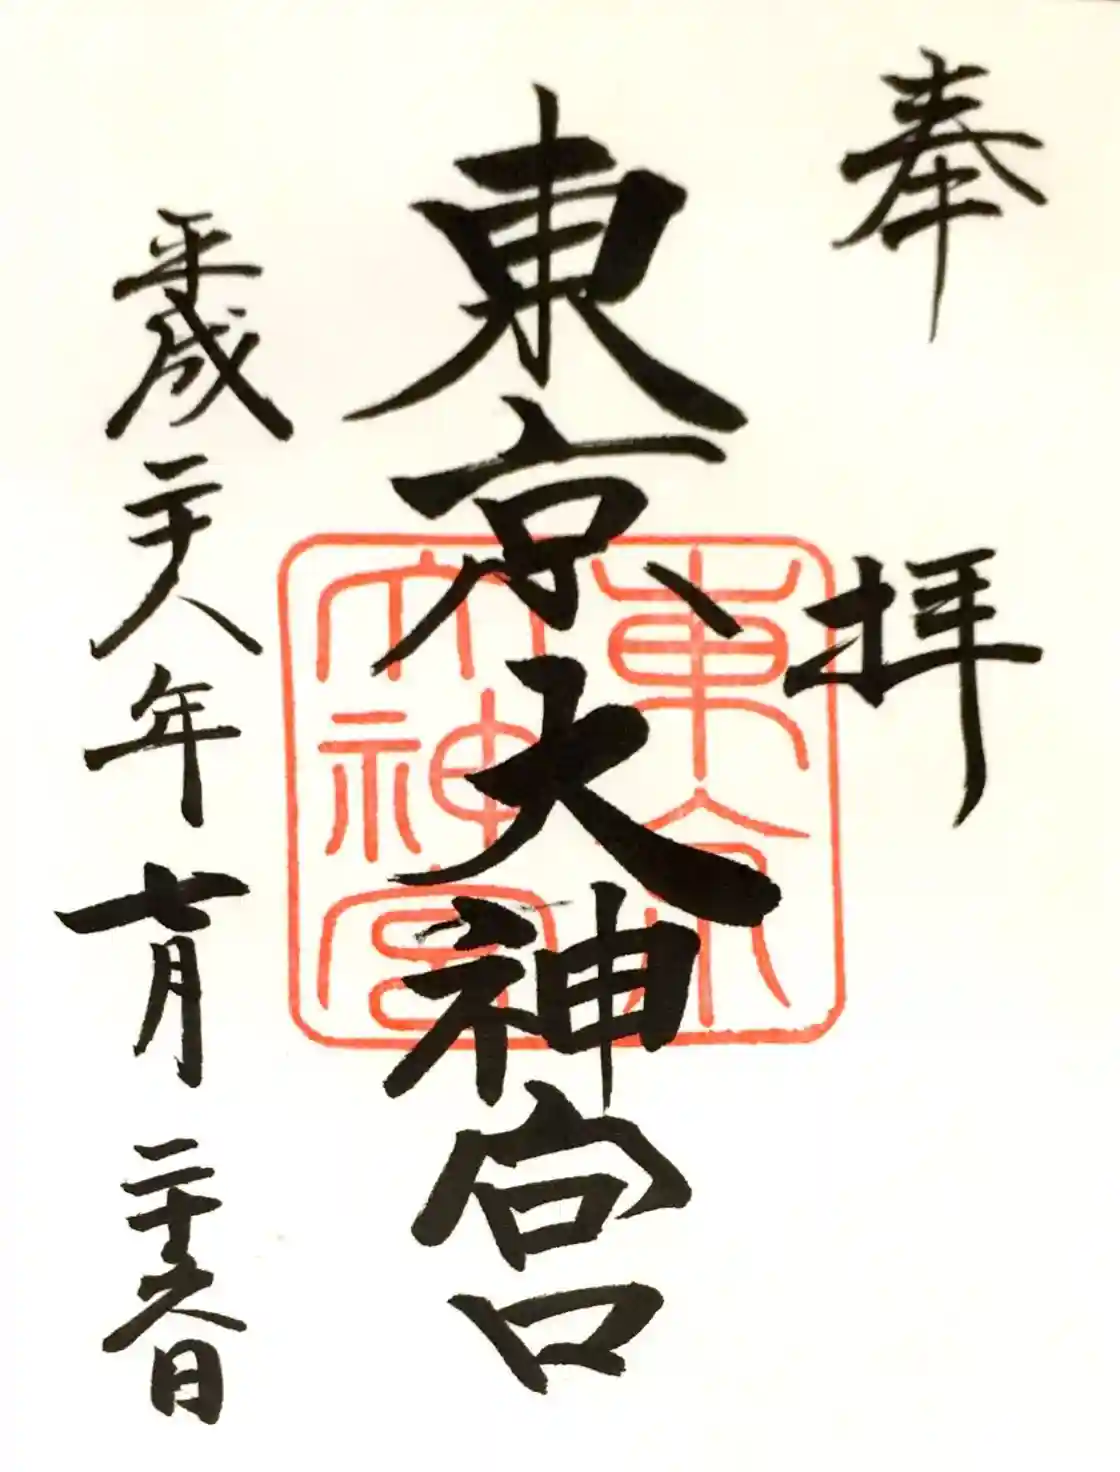 奉拝
東京大神宮
平成二十八年七月二十六日
東京
大神宮